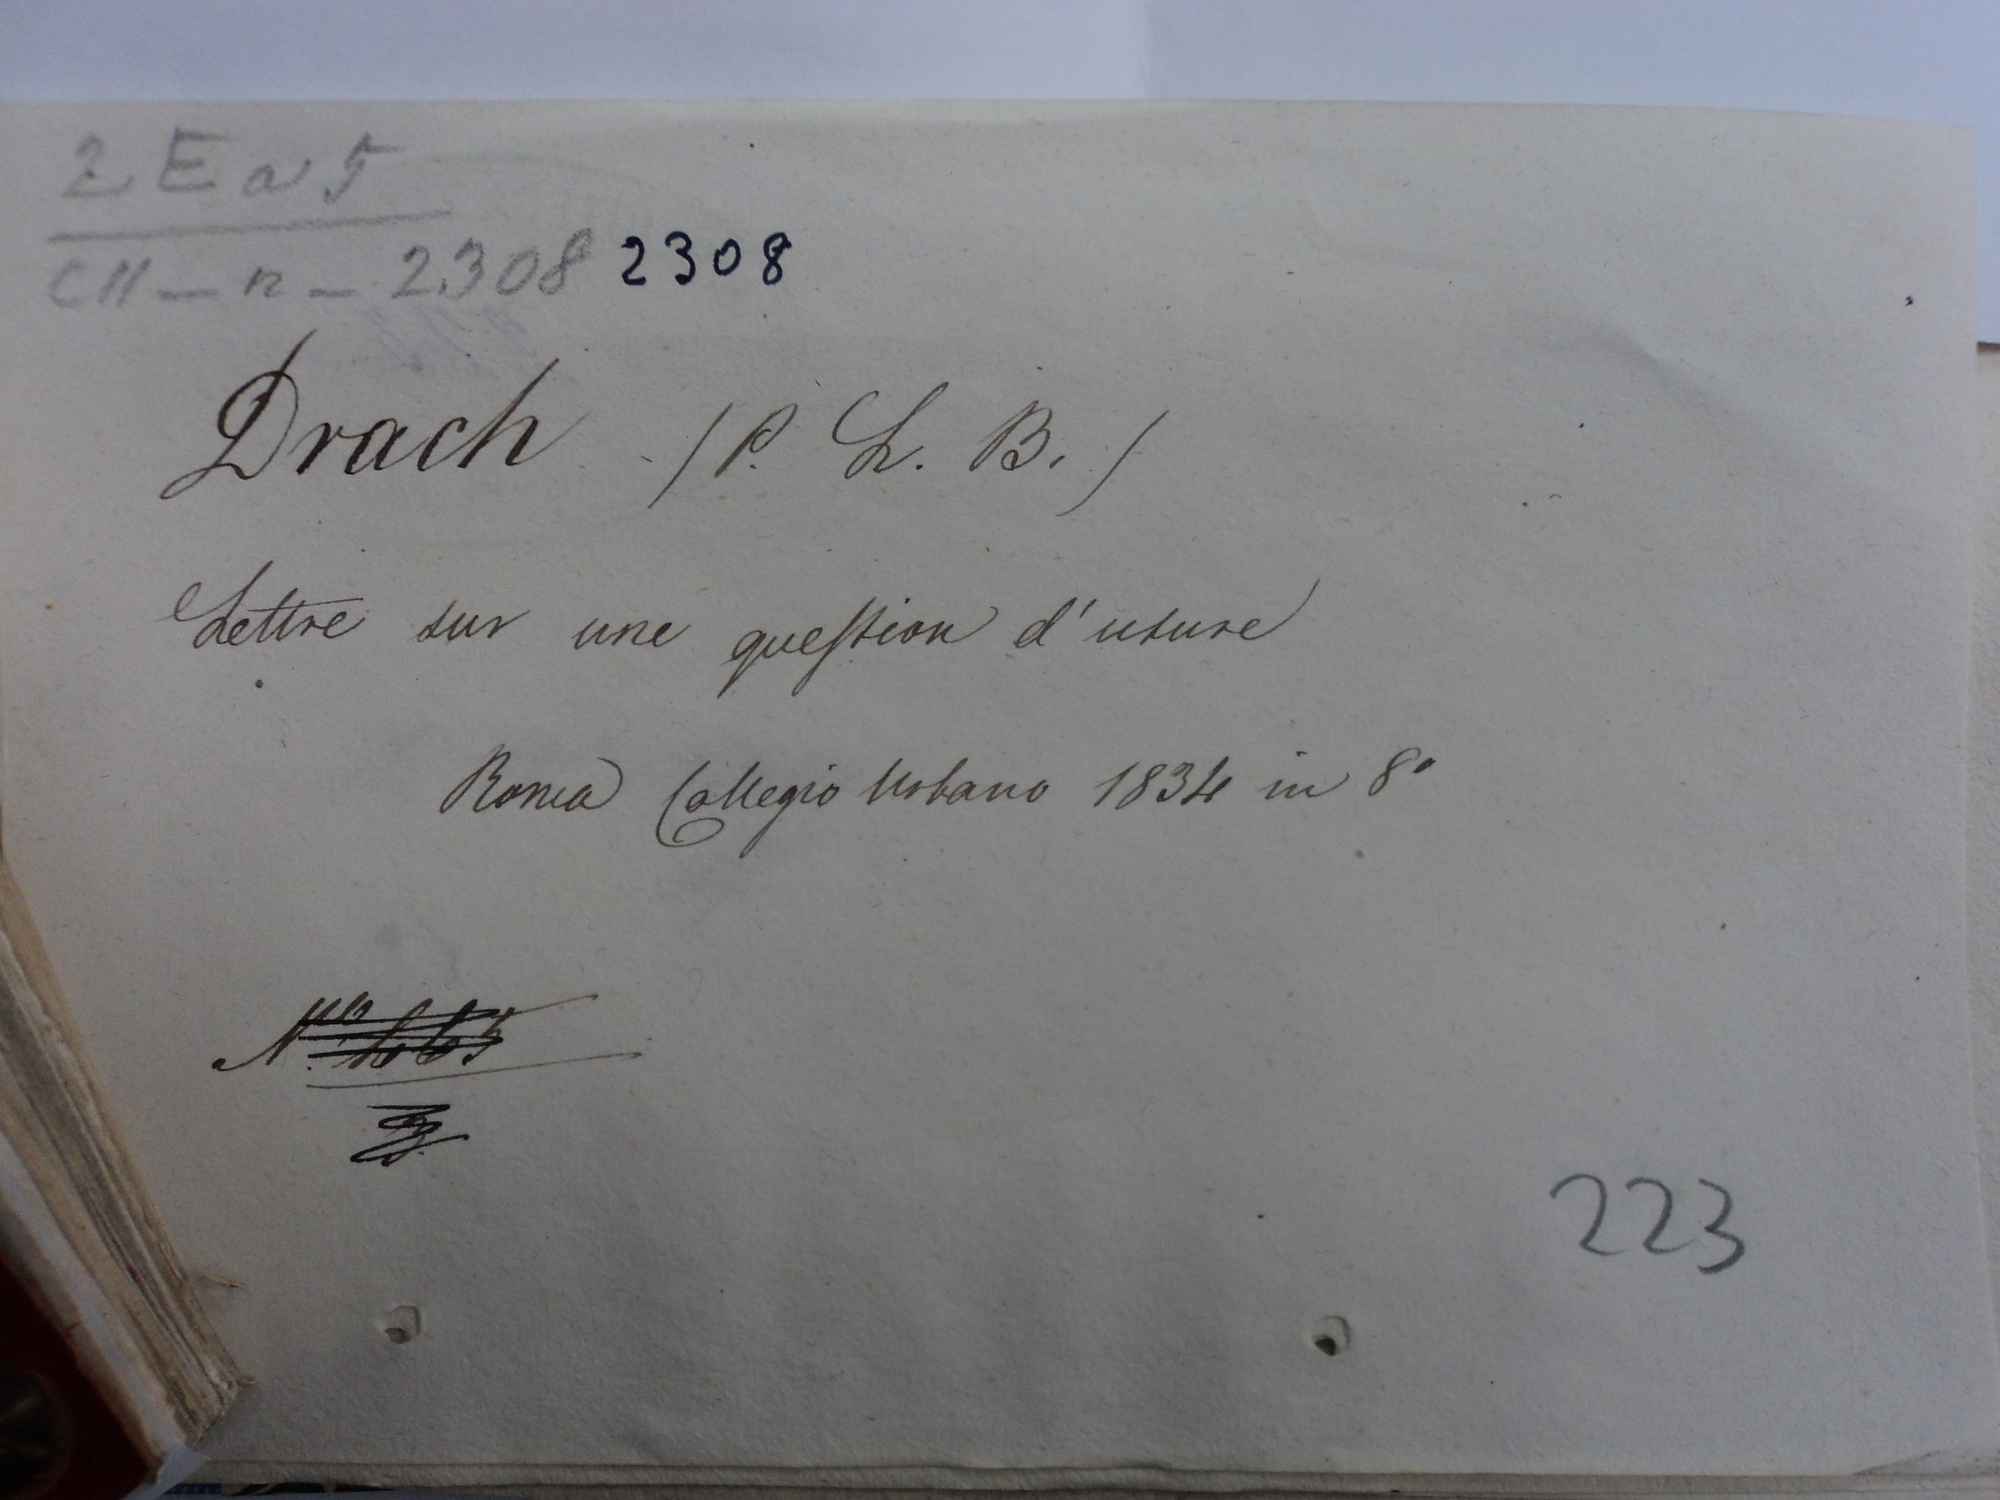 2 E a 5
CH - n - 2308 2308
Drach (P. L. B.)
Lettre sur une question d'usure
Roma Collegio Urbano 1834 in 8°
223